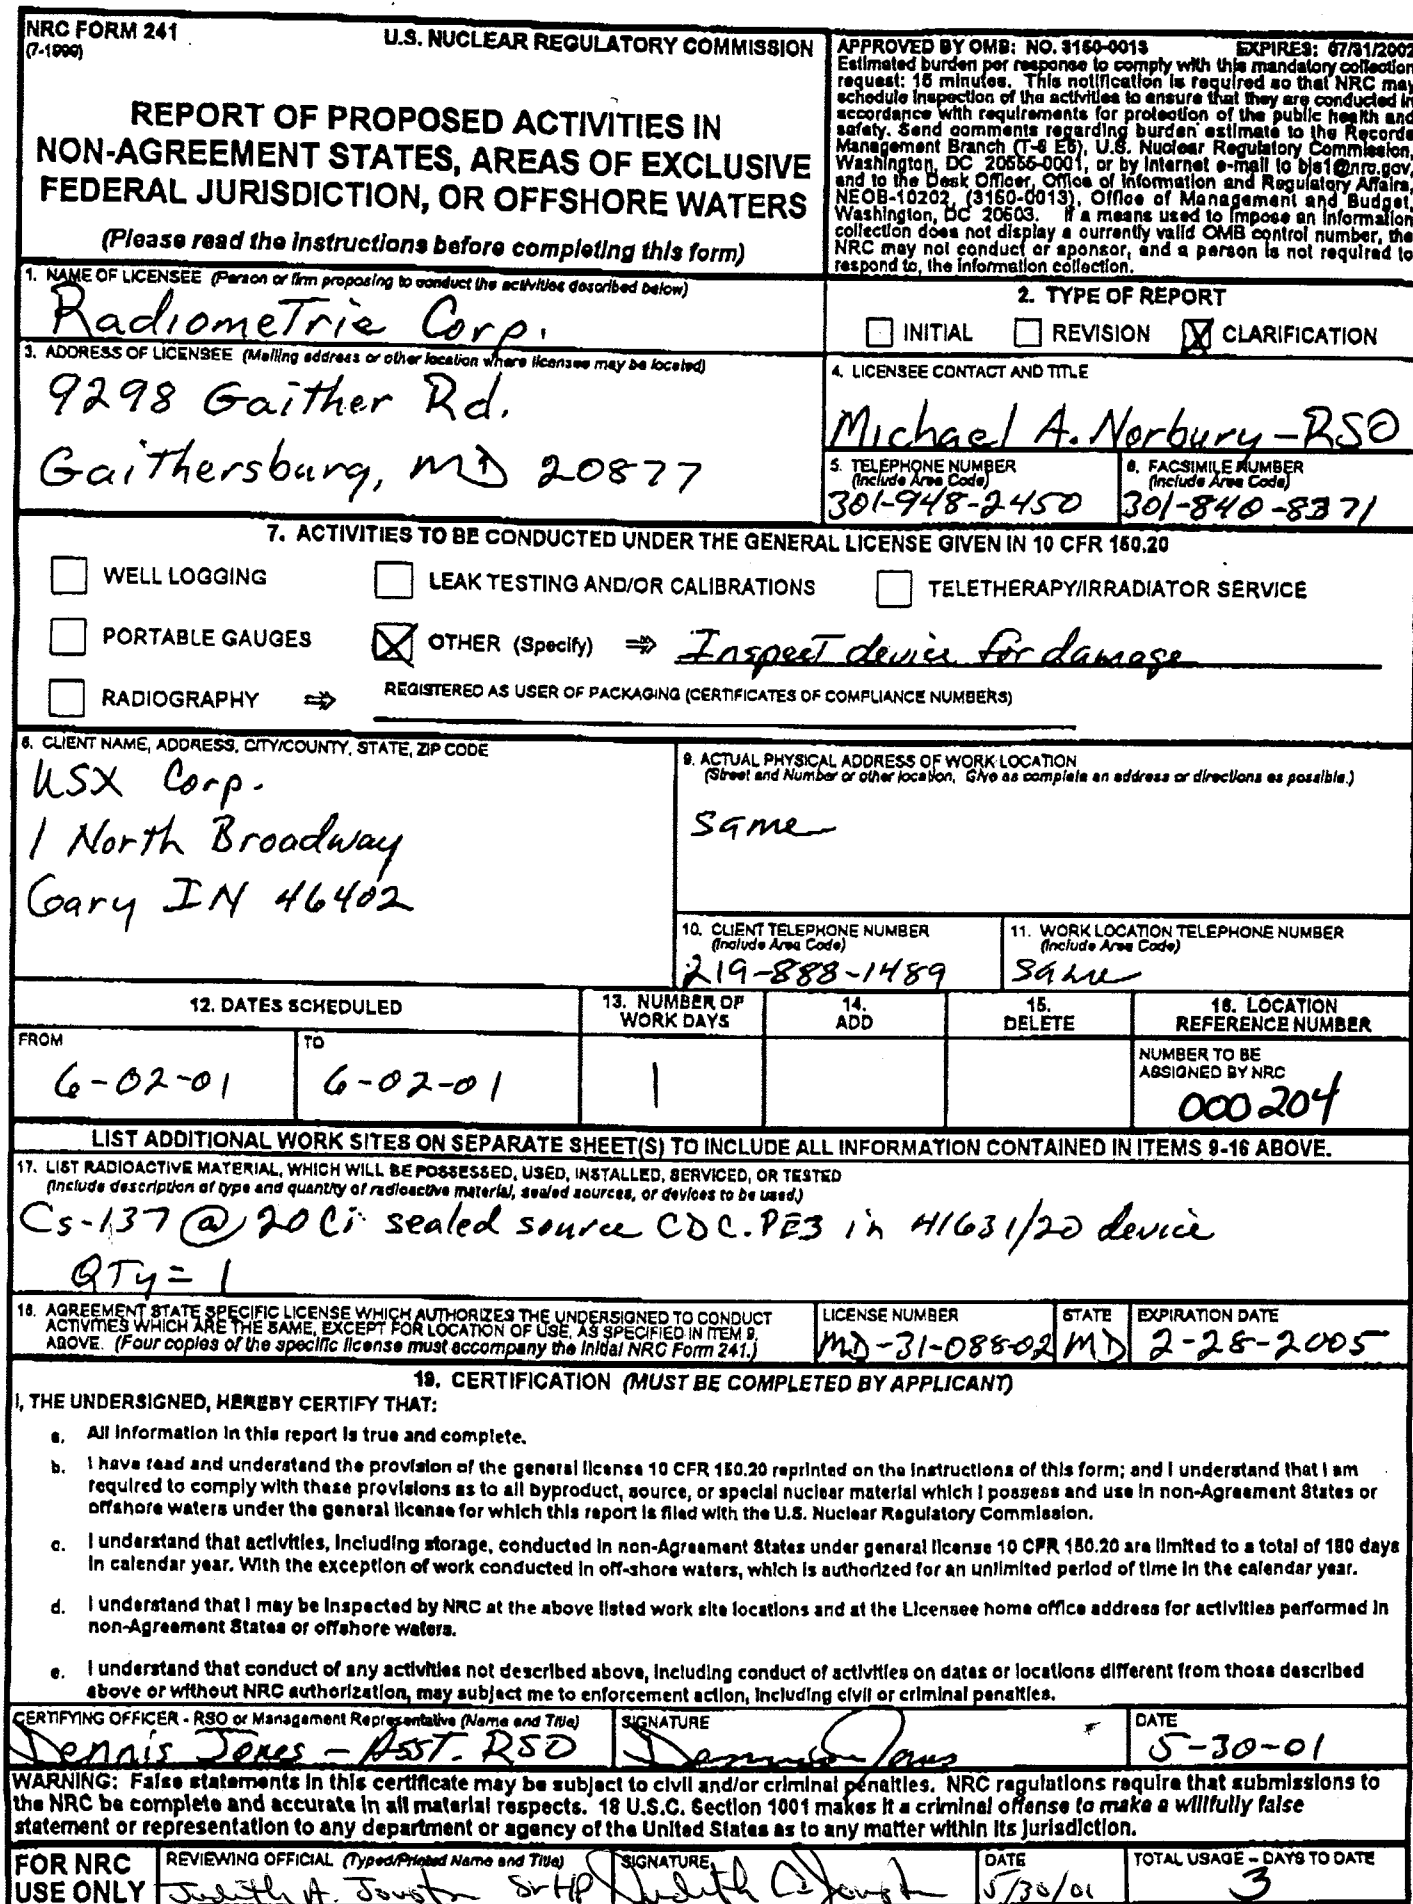 NRC FORM 241
(7-1999)
U.S. NUCLEAR REGULATORY COMMISSION
REPORT OF PROPOSED ACTIVITIES IN
NON-AGREEMENT STATES, AREAS OF EXCLUSIVE
FEDERAL JURISDICTION, OR OFFSHORE WATERS
(Please read the instructions before completing this form)
APPROVED BY OMB: NO. 3150-0013 EXPIRES: 07/31/2002
Estimated burden per response to comply with this mandatory collection
request: 15 minutes. This notification is required so that NRC may
schedule inspection of the activities to ensure that they are conducted in
accordance with requirements for protection of the public health and
safety. Send comments regarding burden estimate to the Records
Management Branch (T-6 E6), U.S. Nuclear Regulatory Commission,
Washington, DC 20555-0001, or by internet e-mail to bjs1@nrc.gov,
and to the Desk Officer, Office of Information and Regulatory Affairs,
NEOB-10202, (3150-0013), Office of Management and Budget,
Washington, DC 20503. If a means used to impose an information
collection does not display a currently valid OMB control number, the
NRC may not conduct or sponsor, and a person is not required to
respond to, the information collection.
1. NAME OF LICENSEE (Person or firm proposing to conduct the activities described below)
Radiometric Corp.
2. TYPE OF REPORT
INITIAL REVISION X CLARIFICATION
3. ADDRESS OF LICENSEE (Mailing address or other location where licensee may be located)
9298 Gaither Rd.
Gaithersburg, MD 20877
4. LICENSEE CONTACT AND TITLE
Michael A. Norbury - RSO
5. TELEPHONE NUMBER
(Include Area Code)
301-948-2450
6. FACSIMILE NUMBER
(Include Area Code)
301-840-8371
7. ACTIVITIES TO BE CONDUCTED UNDER THE GENERAL LICENSE GIVEN IN 10 CFR 150.20
WELL LOGGING LEAK TESTING AND/OR CALIBRATIONS TELETHERAPY/IRRADIATOR SERVICE
PORTABLE GAUGES X OTHER (Specify) ⇒ Inspect device for damage
RADIOGRAPHY ⇒ REGISTERED AS USER OF PACKAGING (CERTIFICATES OF COMPLIANCE NUMBERS)
8. CLIENT NAME, ADDRESS, CITY/COUNTY, STATE, ZIP CODE
USX Corp.
1 North Broadway
Gary IN 46402
9. ACTUAL PHYSICAL ADDRESS OF WORK LOCATION
(Street and Number or other location. Give as complete an address or directions as possible.)
same
10. CLIENT TELEPHONE NUMBER
(Include Area Code)
219-888-1489
11. WORK LOCATION TELEPHONE NUMBER
(Include Area Code)
same
12. DATES SCHEDULED
13. NUMBER OF
WORK DAYS
14.
ADD
15.
DELETE
16. LOCATION
REFERENCE NUMBER
FROM
6-02-01
TO
6-02-01
1
NUMBER TO BE
ASSIGNED BY NRC
000204
LIST ADDITIONAL WORK SITES ON SEPARATE SHEET(S) TO INCLUDE ALL INFORMATION CONTAINED IN ITEMS 9-16 ABOVE.
17. LIST RADIOACTIVE MATERIAL, WHICH WILL BE POSSESSED, USED, INSTALLED, SERVICED, OR TESTED
(Include description of type and quantity of radioactive material, sealed sources, or devices to be used.)
Cs-137 @ 20 Ci sealed source CDC.PE3 in 41631/20 device
QTy = 1
18. AGREEMENT STATE SPECIFIC LICENSE WHICH AUTHORIZES THE UNDERSIGNED TO CONDUCT
ACTIVITIES WHICH ARE THE SAME, EXCEPT FOR LOCATION OF USE, AS SPECIFIED IN ITEM 9,
ABOVE. (Four copies of the specific license must accompany the initial NRC Form 241.)
LICENSE NUMBER
MD-31-088-02
STATE
MD
EXPIRATION DATE
2-28-2005
19. CERTIFICATION (MUST BE COMPLETED BY APPLICANT)
I, THE UNDERSIGNED, HEREBY CERTIFY THAT:
a. All information in this report is true and complete.
b. I have read and understand the provision of the general license 10 CFR 150.20 reprinted on the instructions of this form; and I understand that I am
required to comply with these provisions as to all byproduct, source, or special nuclear material which I possess and use in non-Agreement States or
offshore waters under the general license for which this report is filed with the U.S. Nuclear Regulatory Commission.
c. I understand that activities, including storage, conducted in non-Agreement States under general license 10 CFR 150.20 are limited to a total of 180 days
in calendar year. With the exception of work conducted in off-shore waters, which is authorized for an unlimited period of time in the calendar year.
d. I understand that I may be inspected by NRC at the above listed work site locations and at the Licensee home office address for activities performed in
non-Agreement States or offshore waters.
e. I understand that conduct of any activities not described above, including conduct of activities on dates or locations different from those described
above or without NRC authorization, may subject me to enforcement action, including civil or criminal penalties.
CERTIFYING OFFICER - RSO or Management Representative (Name and Title)
Dennis Jones - Asst. RSO
SIGNATURE
Dennis Jones
DATE
5-30-01
WARNING: False statements in this certificate may be subject to civil and/or criminal penalties. NRC regulations require that submissions to
the NRC be complete and accurate in all material respects. 18 U.S.C. Section 1001 makes it a criminal offense to make a willfully false
statement or representation to any department or agency of the United States as to any matter within its jurisdiction.
FOR NRC
USE ONLY
REVIEWING OFFICIAL (Typed/Printed Name and Title)
Judith A. Joustra Sr HP
SIGNATURE
Judith A. Joustra
DATE
5/30/01
TOTAL USAGE - DAYS TO DATE
3